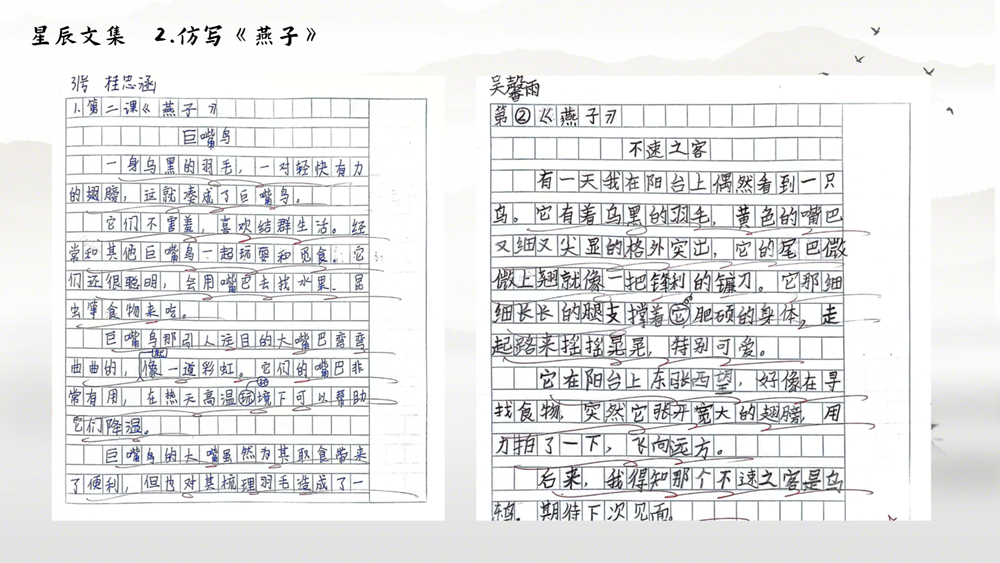 星辰文集 2.仿写《燕子》
3号 桂忠涵
1.第二课《燕子》
巨嘴鸟
一身乌黑的羽毛，一对轻快有力
的翅膀，这就凑成了巨嘴鸟。
它们不害羞，喜欢结群生活。经
常和其他巨嘴鸟一起玩耍和觅食。它
们还很聪明，会用嘴巴去找水果、昆
虫等食物来吃。
巨嘴鸟那引人注目的大嘴巴弯弯
曲曲的，像一道彩虹。它们的嘴巴非
常有用，在热天高温环境下可以帮助
它们降温。
巨嘴鸟的大嘴虽然为其取食带来
了便利，但也对其梳理羽毛造成了一
吴馨雨
第②《燕子》
不速之客
有一天我在阳台上偶然看到一只
鸟。它有着乌黑的羽毛，黄色的嘴巴
又细又尖显的格外突出，它的尾巴微
微上翘就像一把锋利的镰刀。它那细
细长长的腿支撑着它肥硕的身体，走
起路来摇摇晃晃，特别可爱。
它在阳台上东张西望，好像在寻
找食物，突然它张开宽大的翅膀，用
力拍了一下，飞向远方。
后来，我得知那个不速之客是乌
鸫，期待下次见面